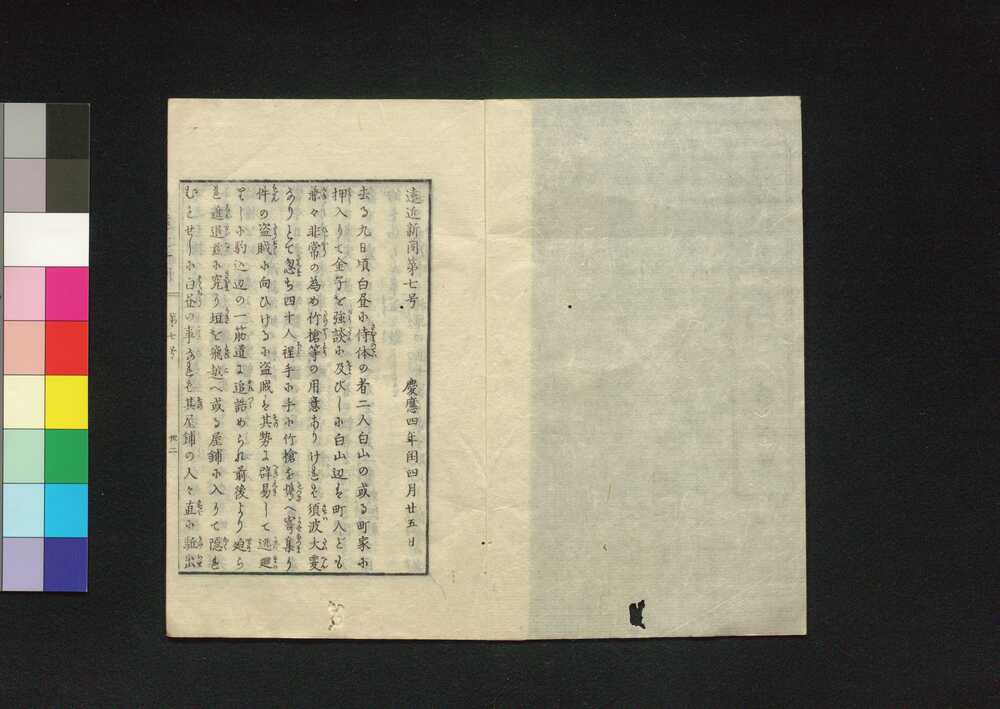 遠近新聞第七号　慶應四年閏四月廿五日
去る九日頃白昼に侍体の者二人白山の或る町家に
押入りて金子を強談に及びしに白山辺は町人ども
兼々非常の為め竹槍等の用意ありければ須波大変
ありとて忽ち四十人程手に手に竹槍を携へ寄集り
件の盗賊に向ひけるに盗賊は其勢に辟易して逃廻
りしに駒込辺の一筋道に追詰められ前後より迫ら
れ進退茲に究り垣を飛越へ或る屋鋪に入りて隠れ
むとせしに白昼の事なれば其屋鋪の人々直に駈出
第七号
廿二